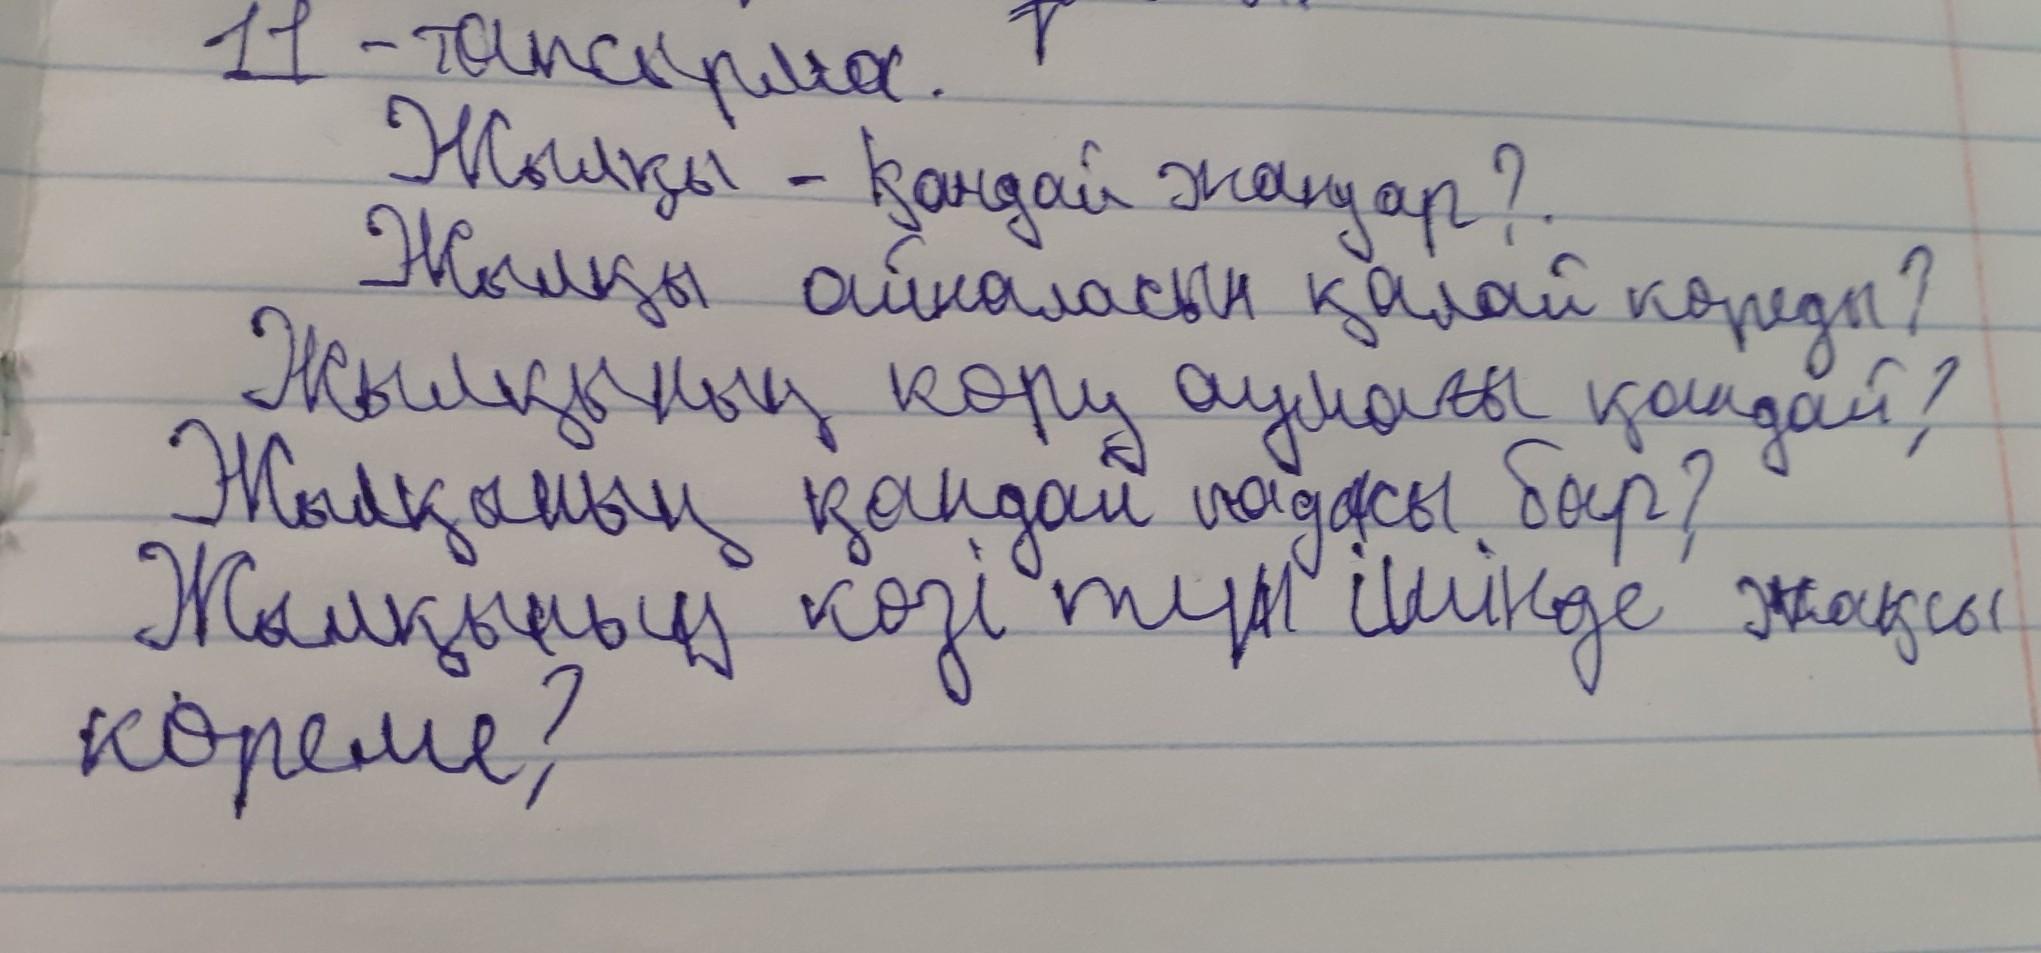 11 - тапсырма.
Жылқы - қандай жануар?
Жылқы айналасын қалай көреды?
Жылқының көру аумағы қандай?
Жылқының қандай падасы бар?
Жылқының көзі түн ішінде жақсы
көреме?